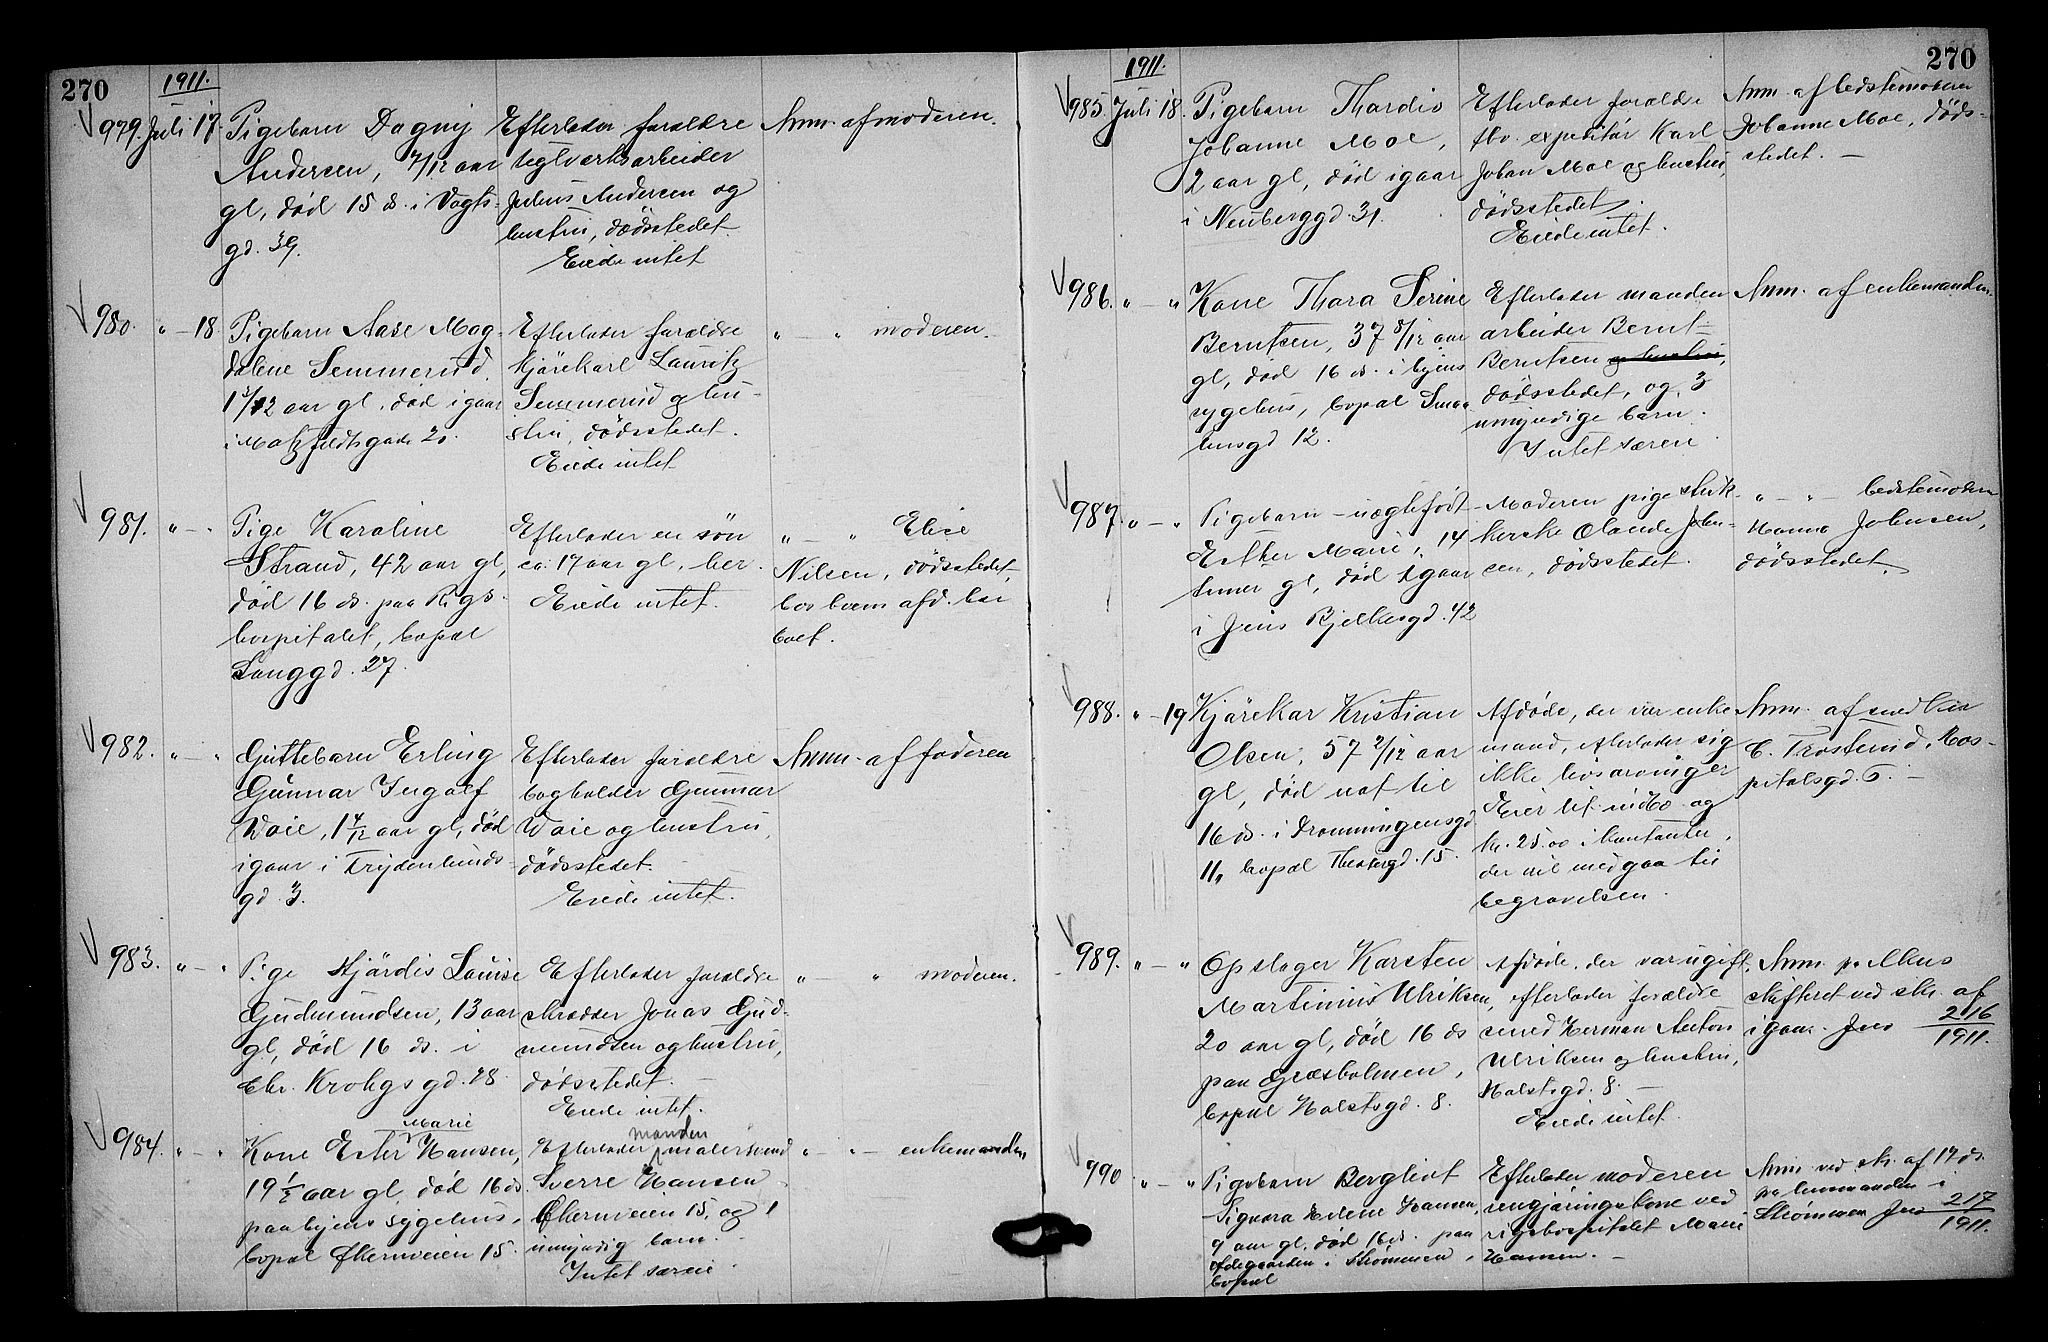 270
1911.
979. Juli 17.
Pigebarn Dagny
Andersen, 7/12 aar
gl, död 15 ds. i Vogts-
gd. 39.
Efterlader forældre
teglverksarbeider
Julius Andersen og
hustru, dödsstedet.
Eiede intet
Anm. af moderen.
980. " — 18.
Pigebarn Aase Mag-
dalene Semmerud,
1 3/12 aar gl, död igaar
i Motzfeldtsgade 20.
Efterlader forældre
kjörekarl Lauritz
Semmerud og hu-
stru, dödsstedet.
Eiede intet
" — " moderen.
981. " — "
Pige Karoline
Strand, 42 aar gl,
död 16 ds. paa Rigs-
hospitalet, bopæl
Langgd. 27.
Efterlader en sön
ca: 17 aar gl, her.
Eiede intet.
" — " Elise
Nilsen, dödsstedet,
hos hvem afd. har
boet.
982. " — "
Guttebarn Erling
Gunnar Ingolf
Waie, 1 4/12 aar gl, död
igaar i Frydenlunds-
gd. 3.
Efterlader forældre
bogholder Gunnar
Waie og hustru,
dödsstedet.
Eiede intet.
Anm. af faderen
983. " — "
Pige Hjördis Louise
Gudmundsen, 13 aar
gl, död 16 ds. i
Chr. Krohgs gd. 28.
Efterlader forældre
skrædder Jonas Gud-
mundsen og hustru,
dödsstedet.
Eiede intet.
" " moderen.
984. " — "
Marie
Kone Ester Hansen,
19 1/2 aar gl, död 16 ds.
paa byens sygehus,
bopæl Økernveien 15.
manden
Efterlader malersvend
Sverre Hansen
Økernveien 15, og 1
umyndig barn.
Intet særeie.
" — " — enkemanden
270
1911.
985. Juli 18.
Pigebarn Thordis
Johanne Moe,
2 aar gl, död igaar
i Neuberggd. 31.
Efterlader forældre
fhv. expeditör Karl
Johan Moe og hustru,
dödsstedet.
Eiede intet.
Anm. af bedstemoderen
Johanne Moe, döds-
stedet. —
986. " — "
Kone Thora Serine
Berntsen, 37 8/12 aar
gl, död 16 ds. i byens
sygehus, bopæl Smaa-
lensgd 12.
Efterlader manden
arbeider Bernt
Berntsen og hustru,
dödsstedet, og 3
umyndige barn.
Intet særeie.
Anm. af enkemanden.
987. " — "
Pigebarn – uægtefödt
Esther Marie, 14
timer gl, död igaar
i Jens Bjelkesgd. 42
Moderen pige strik-
kerske Olande John-
sen, dödsstedet.
" — " — bedstemoderen
Hanna Johnsen,
dödsstedet.
988. " — 19
Kjörekar Kristian
Olsen, 57 2/12 aar
gl, död nat til
16 ds. i Dronningensgd
11, bopæl Theatergd. 15.
Afdöde, der var enke
mand, efterlader sig
ikke livsarvinger
Eier lit indbo og
kr. 25.00 i kontanter,
der vil medgaa til
begravelsen.
Anm. af snedker
C. Trosterud, Hos-
pitalsgd. 6. —
989. " — "
Opslager Karsten
Martinius Ulriksen,
20 aar gl, död 16 ds
paa Græsholmen,
bopæl Holstsgd. 8.
Afdöde, der var ugift,
efterlader forældre
smed Herman Anton
Ulriksen og hustru,
Holstsgd. 8. —
Eiede intet.
Anm.
skifteret ved skr. af
igaar. Jno 216/1911.
990 " — "
Pigebarn Bergliot
Signora Helene Hansen,
9 aar gl, död 16 ds. paa
Ødegaarden i Strömmen,
bopæl
Efterlader moderen
rengjöringskone ved
rigshospitalet Marie
Hansen. —
Anm. ved skr. af 17 ds.
fra lensmanden i
Strömmen Jno 217/1911.